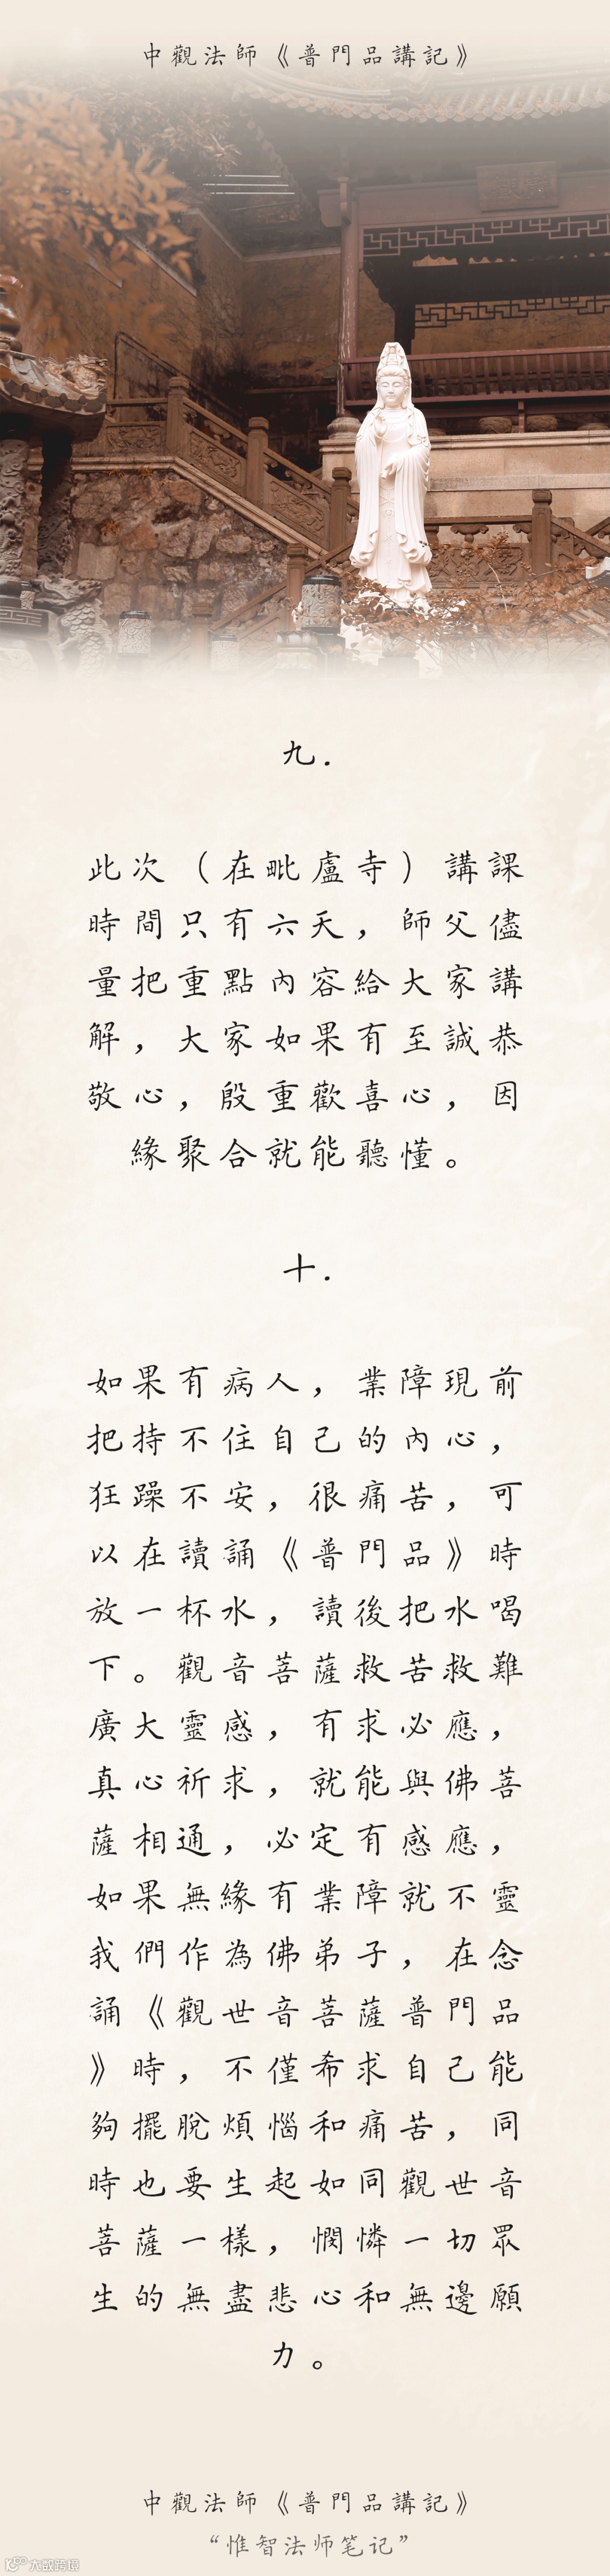 中觀法師《普門品講記》
九.
此次（在毗盧寺）講課
時間只有六天，師父儘
量把重點內容給大家講
解，大家如果有至誠恭
敬心，殷重歡喜心，因
緣聚合就能聽懂。
十.
如果有病人，業障現前
把持不住自己的內心，
狂躁不安，很痛苦，可
以在讀誦《普門品》時
放一杯水，讀後把水喝
下。觀音菩薩救苦救難
廣大靈感，有求必應，
真心祈求，就能與佛菩
薩相通，必定有感應，
如果無緣有業障就不靈
我們作為佛弟子，在念
誦《觀世音菩薩普門品
》時，不僅希求自己能
夠擺脫煩惱和痛苦，同
時也要生起如同觀世音
菩薩一樣，憫憐一切眾
生的無盡悲心和無邊願
力。
中觀法師《普門品講記》
“惟智法师笔记”
大数跨境